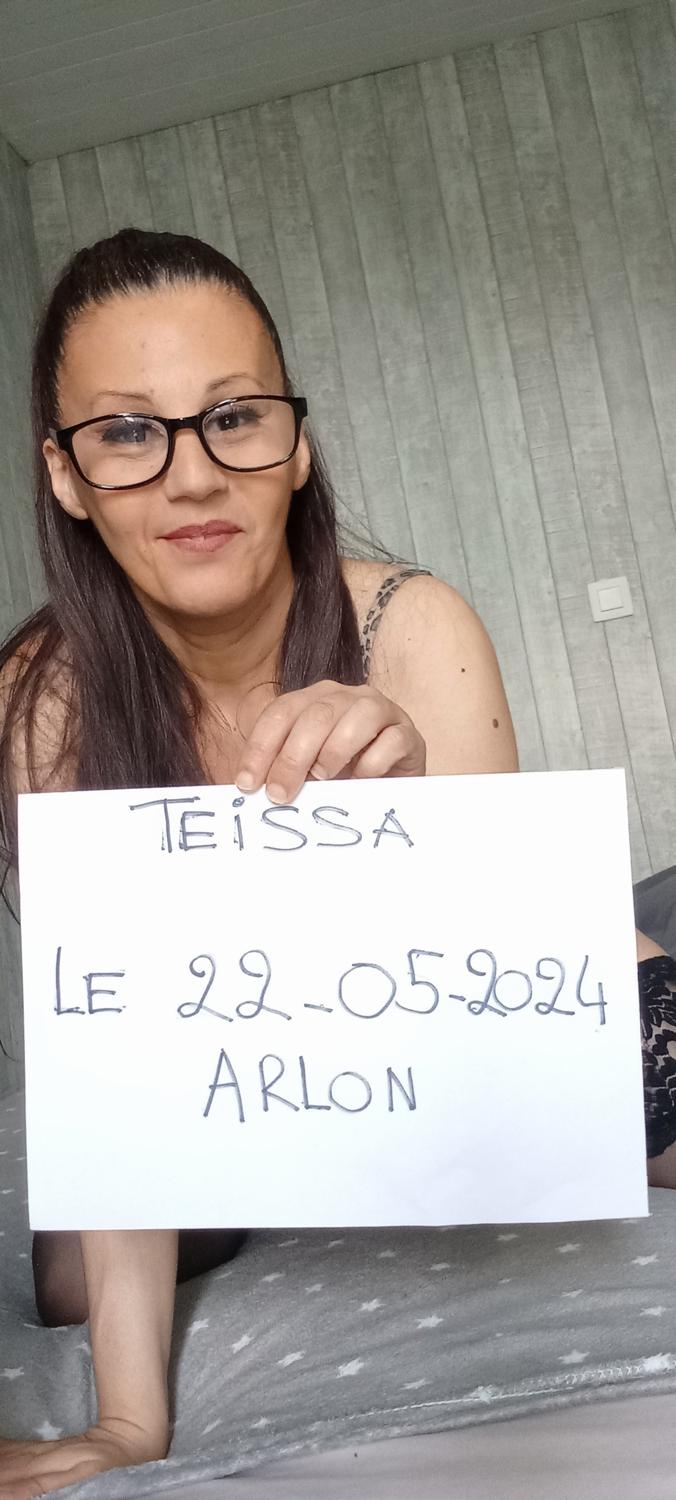 TEiSSA
LE 22-05-2024
ARLON